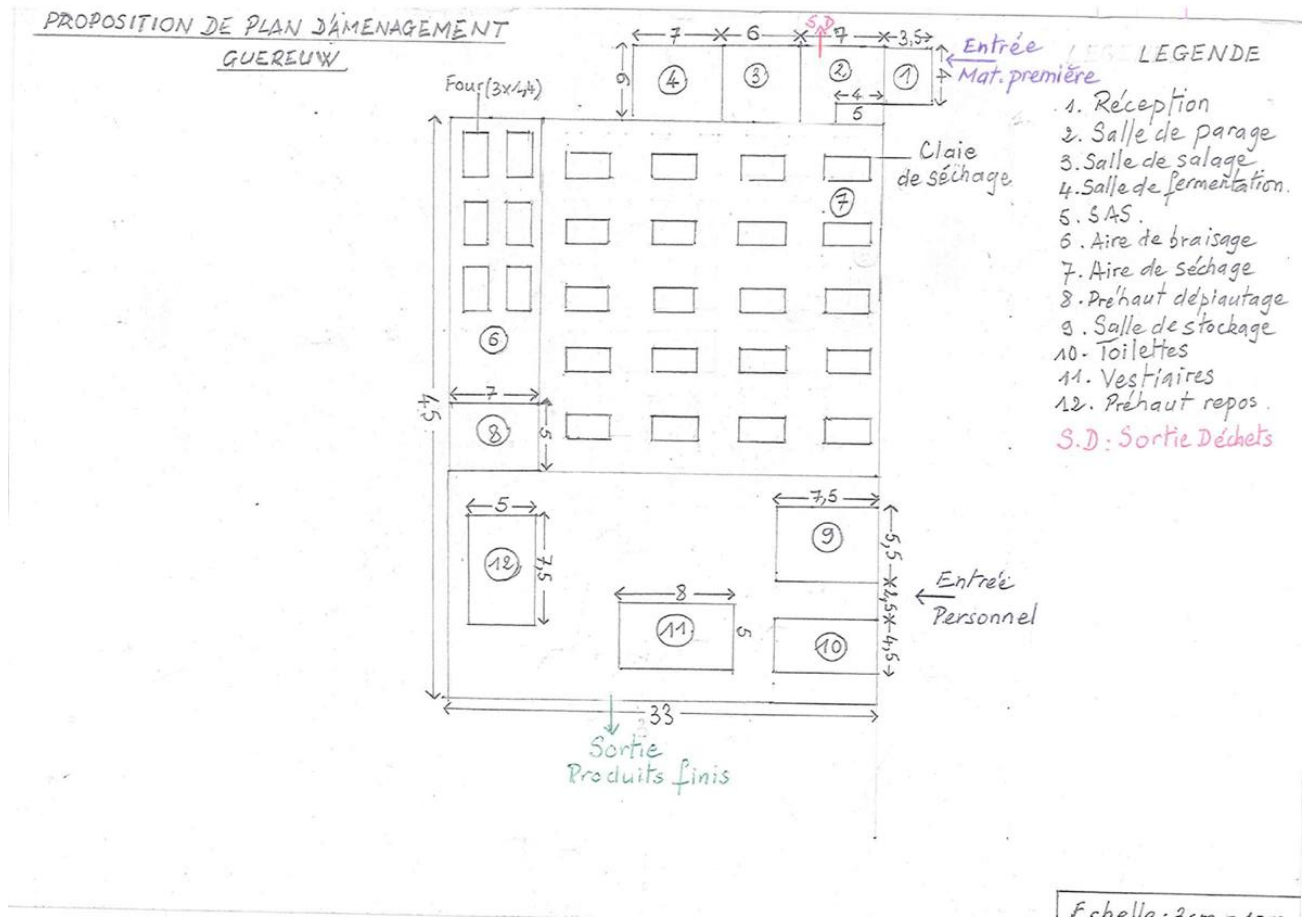 PROPOSITION DE PLAN D'AMENAGEMENT
GUEREUW
7 6 7 3,5
S.D
Entrée
Mat. première
6
4
3
2
1
4
4
5
Four (3x1,4)
Claie
de séchage
7
6
45
7
8
5
5
12
7,5
7,5
9
5,5
2,5
4,5
Entrée
Personnel
8
11
5
10
33
Sortie
Produits finis
LEGENDE
1. Réception
2. Salle de parage
3. Salle de salage
4. Salle de fermentation.
5. SAS.
6. Aire de braisage
7. Aire de séchage
8. Préhaut dépiautage
9. Salle de stockage
10- Toilettes
11. Vestiaires
12. Préhaut repos.
S.D: Sortie Déchets